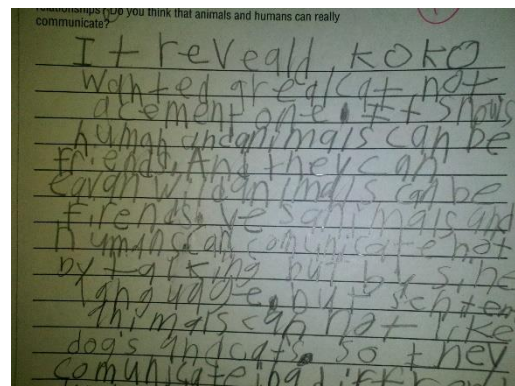 relationships? Do you think that animals and humans can really
communicate?
It reveald, KoKo
wanted a real cat not
a cement one. It shows
human and animals can be
friends. And they can
wild animals can be
firends. yes animals and
humans can comunicate not
by talking but by sine
language, but
animals can not like
dogs and cats. so they
comunicate